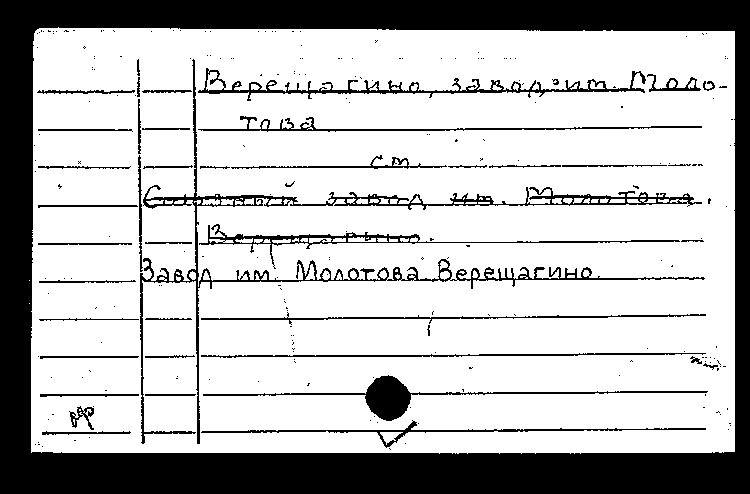 Верещагино, завод им. Моло-
това
см.
завод им. Молотова.
Верещагино.
Завод им. Молотова Верещагино.